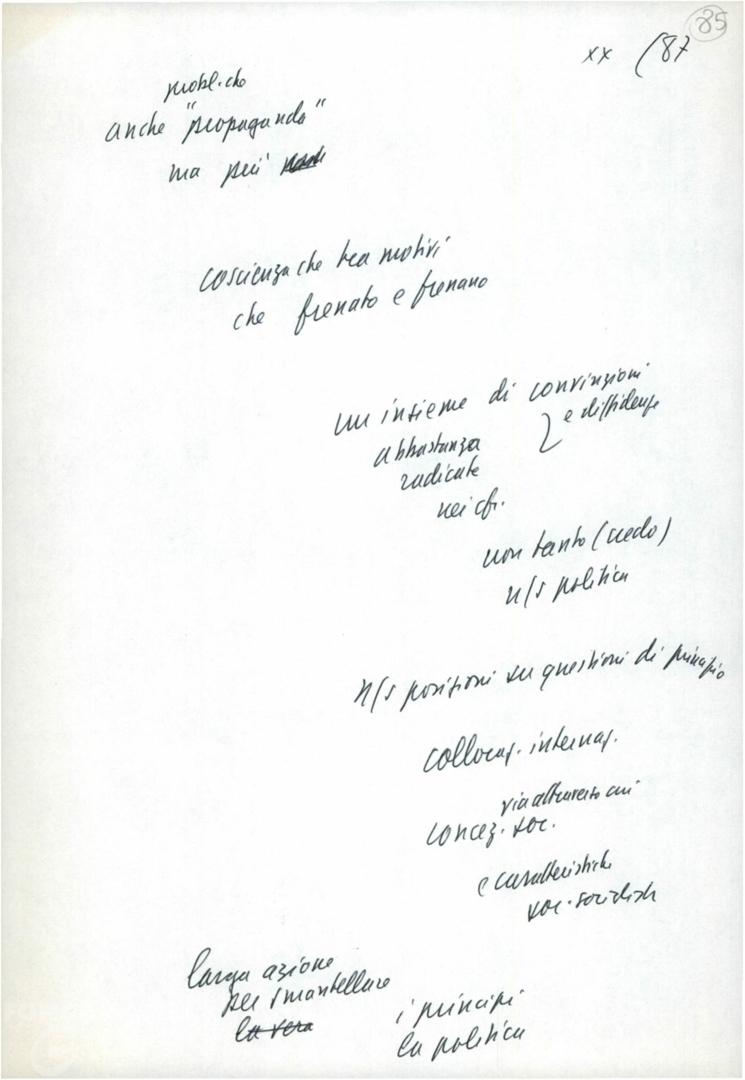 85
xx (87
probl. che
anche "propaganda"
ma più
coscienza che tra motivi
che frenato e frenano
un insieme di convinzioni
e diffidenze
abbastanza
radicate
nei cfr.
non tanto (credo)
n/s politica
n/s posizioni su questioni di principio
collocaz. internaz.
via attraverso cui
concez. soc.
e caratteristiche
soc. socialista
larga azione
per smantellare
la vera
i principi
la politica